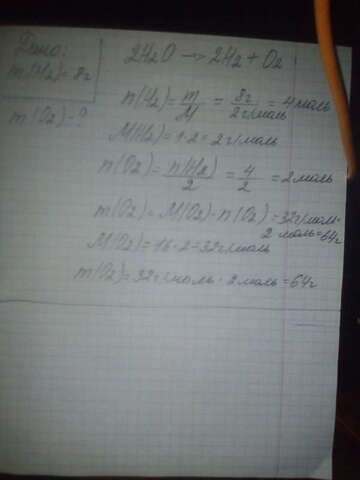 Дано:
m(H2)=8г
m(O2)-?
2H2O → 2H2 + O2
n(H2) = m/M = 8г/2г/моль = 4моль
M(H2)=1·2=2г/моль
n(O2)=n(H2)/2 = 4/2 = 2моль
m(O2)=M(O2)·n(O2)=32г/моль·
2моль=64г
M(O2)=16·2=32г/моль
m(O2)=32г/моль·2моль=64г